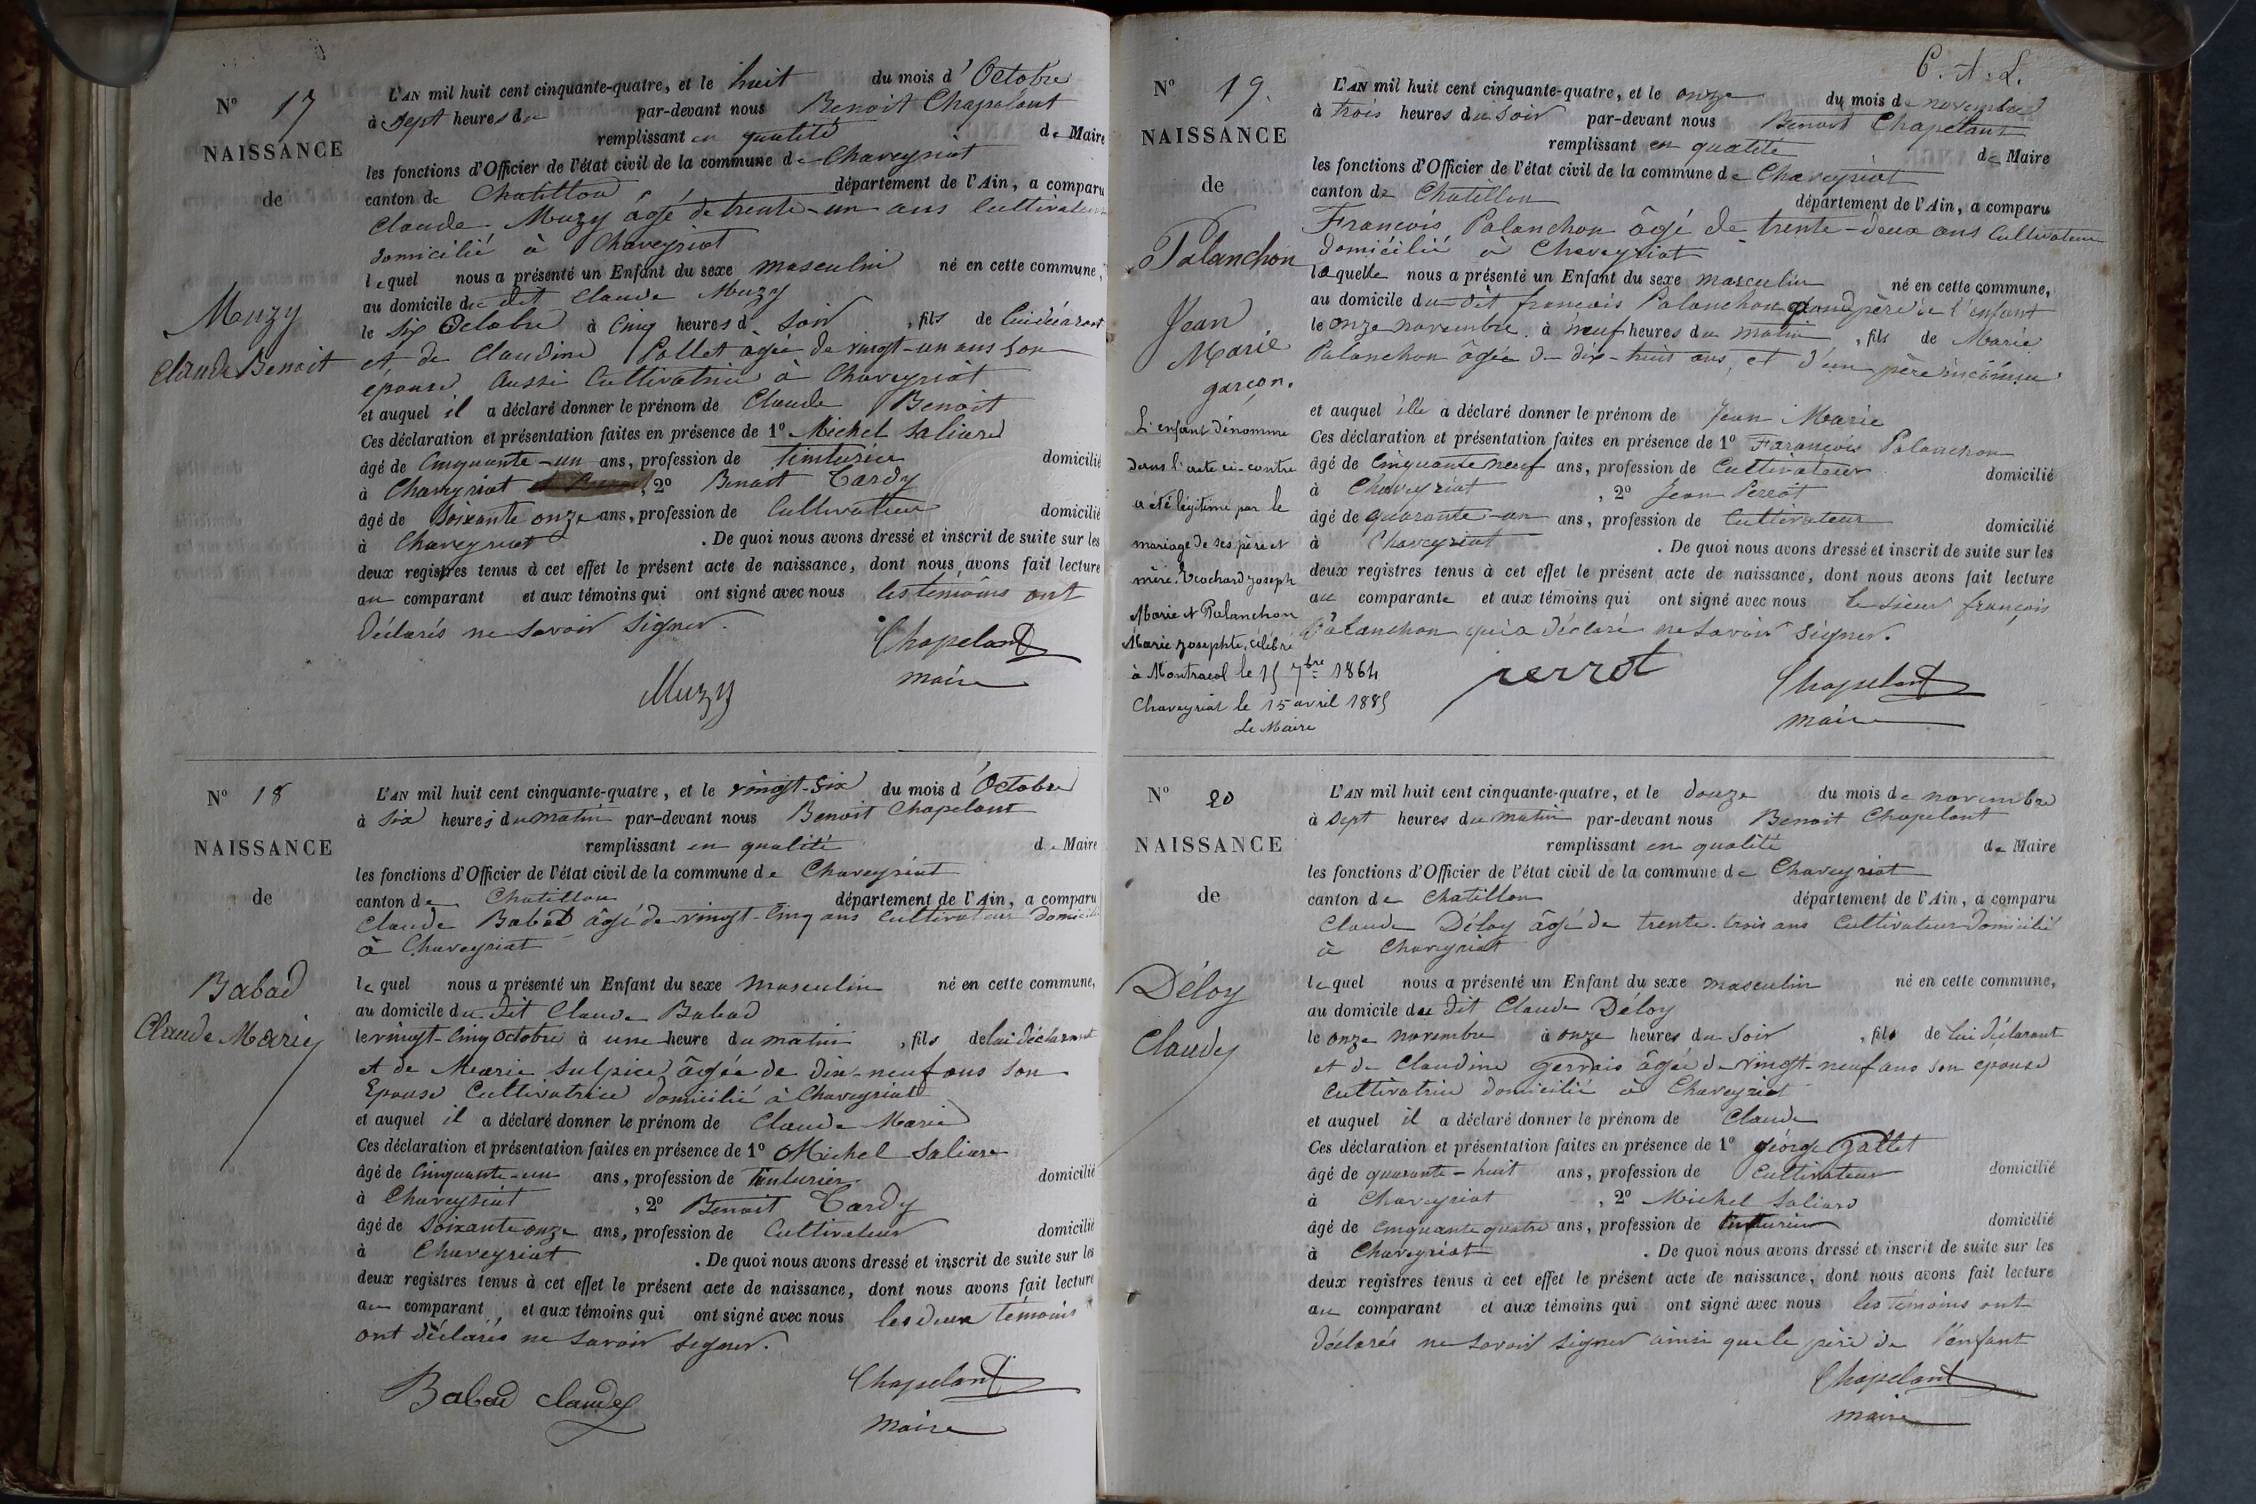 N° 17
NAISSANCE
de
Muzy
Claude Benoit
L'AN mil huit cent cinquante-quatre, et le huit du mois d'Octobre
à sept heures du par-devant nous Benoit Chapelant
remplissant en qualité de Maire
les fonctions d'Officier de l'état civil de la commune de Chaveyriat
canton de Chatillon département de l'Ain, a comparu
Claude Muzy âgé de trente-un ans Cultivateur
domicilié à Chaveyriat
lequel nous a présenté un Enfant du sexe masculin né en cette commune,
au domicile du dit Claude Muzy
le six Octobre à cinq heures d soir, fils de lui déclarant
et de Claudine Pollet agée de vingt-un ans son
épouse aussi Cultivatrice à Chaveyriat
et auquel il a déclaré donner le prénom de Claude Benoit
Ces déclaration et présentation faites en présence de 1° Michel Saliard
âgé de Cinquante-un ans, profession de teinturier domicilié
à Chaveyriat, 2° Benoit Tardy
âgé de Soixante onze ans, profession de Cultivateur domicilié
à Chaveyriat. De quoi nous avons dressé et inscrit de suite sur les
deux registres tenus à cet effet le présent acte de naissance, dont nous avons fait lecture
au comparant et aux témoins qui ont signé avec nous les témoins ont
déclarés ne savoir signer.
Chapelant
maire
Muzy
N° 18
NAISSANCE
de
Babad
Claude Marie
L'AN mil huit cent cinquante-quatre, et le vingt-six du mois d'Octobre
à six heures du matin par-devant nous Benoit Chapelant
remplissant en qualité de Maire
les fonctions d'Officier de l'état civil de la commune de Chaveyriat
canton de Chatillon département de l'Ain, a comparu
Claude Babad âgé de vingt-cinq ans cultivateur domicilié
à Chaveyriat
lequel nous a présenté un Enfant du sexe masculin né en cette commune,
au domicile du dit Claude Babad
le vingt-cinq Octobre à une heure du matin, fils de lui déclarant
et de Marie Sulpice âgée de dix-neuf ans son
Epouse Cultivatrice domicilié à Chaveyriat
et auquel il a déclaré donner le prénom de Claude Marie
Ces déclaration et présentation faites en présence de 1° Michel Saliard
âgé de Cinquante-un ans, profession de teinturier domicilié
à Chaveyriat, 2° Benoit Tardy
âgé de Soixante onze ans, profession de Cultivateur domicilié
à Chaveyriat. De quoi nous avons dressé et inscrit de suite sur les
deux registres tenus à cet effet le présent acte de naissance, dont nous avons fait lecture
au comparant et aux témoins qui ont signé avec nous les deux témoins
ont déclarés ne savoir signer.
Babad Claude
Chapelant
Maire
C. A. L.
N° 19.
NAISSANCE
de
Palanchon
Jean
Marie
garçon.
L'enfant dénommé
dans l'acte ci-contre
a été légitimé par le
mariage de ses père et
mère, Brochard Joseph
Marie et Palanchon
Marie Josephte, célébré
à Montracol le 15 7bre 1864
Chaveyriat le 15 avril 1885
Le Maire
L'AN mil huit cent cinquante-quatre, et le onze du mois de novembre
à trois heures du soir par-devant nous Benoit Chapelant
remplissant en qualité de Maire
les fonctions d'Officier de l'état civil de la commune de Chaveyriat
canton de Chatillon département de l'Ain, a comparu
François Palanchon âgé de trente-deux ans Cultivateur
domicilié à Chaveyriat
laquelle nous a présenté un Enfant du sexe masculin né en cette commune,
au domicile du dit françois Palanchon grand père de l'enfant
le onze novembre à neuf heures du matin, fils de Marie
Palanchon âgée de dix-huit ans, et d'un père inconnu
et auquel ille a déclaré donner le prénom de Jean Marie
Ces déclaration et présentation faites en présence de 1° Farançois Palanchon
âgé de Cinquante neuf ans, profession de Cultivateur domicilié
à Chaveyriat, 2° Jean Perrot
âgé de quarante-un ans, profession de Cultivateur domicilié
à Chaveyriat. De quoi nous avons dressé et inscrit de suite sur les
deux registres tenus à cet effet le présent acte de naissance, dont nous avons fait lecture
au comparante et aux témoins qui ont signé avec nous le sieur françois
Palanchon qui a déclaré ne savoir signer.
perrot
Chapelant
maire
N° 20
NAISSANCE
de
Déloy
Claude
L'AN mil huit cent cinquante-quatre, et le douze du mois de novembre
à sept heures du matin par-devant nous Benoit Chapelant
remplissant en qualité de Maire
les fonctions d'Officier de l'état civil de la commune de Chaveyriat
canton de Chatillon département de l'Ain, a comparu
Claude Déloy âgé de trente-trois ans Cultivateur domicilié
à Chaveyriat
lequel nous a présenté un Enfant du sexe masculin né en cette commune,
au domicile du dit Claude Déloy
le onze novembre à onze heures du soir, fils de lui déclarant
et de Claudine Gervais âgée de vingt-neuf ans son épouse
Cultivatrice domicilié à Chaveyriat
et auquel il a déclaré donner le prénom de Claude
Ces déclaration et présentation faites en présence de 1° géorge Gallet
âgé de quarante-huit ans, profession de Cultivateur domicilié
à Chaveyriat, 2° Michel Saliard
âgé de cinquante quatre ans, profession de teinturier domicilié
à Chaveyriat. De quoi nous avons dressé et inscrit de suite sur les
deux registres tenus à cet effet le présent acte de naissance, dont nous avons fait lecture
au comparant et aux témoins qui ont signé avec nous les témoins ont
déclarés ne savoir signer ainsi que le père de l'enfant
Chapelant
maire